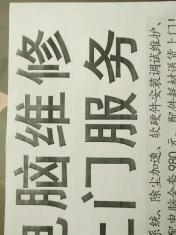 电脑维修
上门服务
系统、除尘加速、软硬件安装调试维护、
配电脑全套980元。配件耗材送货上门!